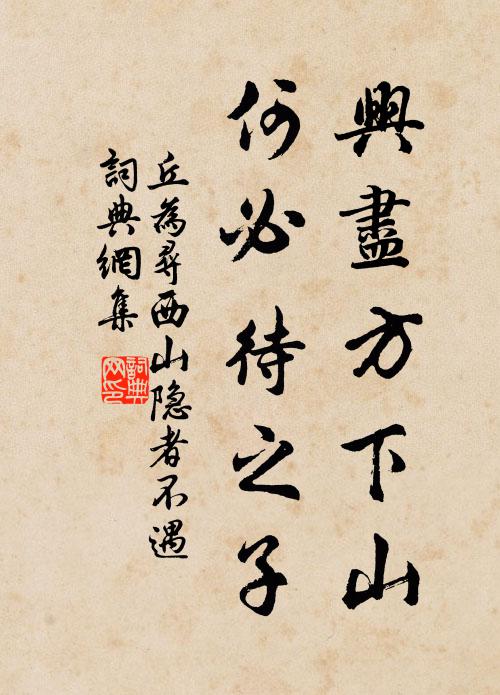 興盡方下山
何必待之子
丘為尋西山隐者不遇
詞典網集
詞典网印